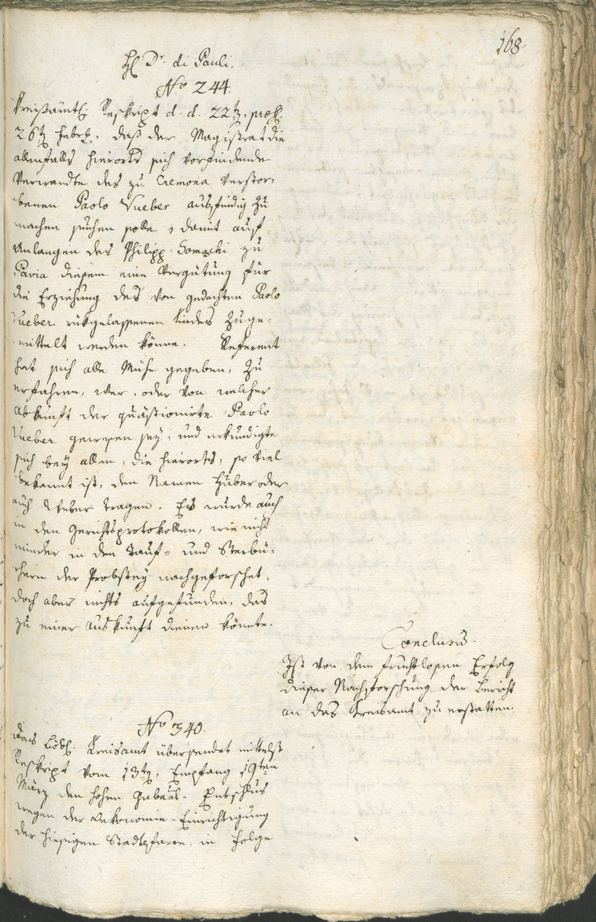 168
H. Dr. di Pauli.
No 244.
Kreisämtl. Reskript d. d. 22t, präs.
26t Febr., daß der Magistrat die
allenfalls hierorts sich vorfindende
Verwandte des zu Cremona verstor-
benen Paolo Vueber ausfindig zu
machen suchen solle, damit auf
Anlangen des Philipp zu
Pavia diesem eine Vergütung für
die Erziehung des von gedachten Paolo
Vueber rükgelassenen Kindes zuge-
mittelt werden könne. Referent
hat sich alle Mühe gegeben, zu
erfahren, wer, oder von welcher
Abkunft der quästionirte Paolo
Vueber gewesen sey, und erkundigte
sich bey allen, die hierorts, so viel
bekannt ist, den Namen Huber oder
auch Weber tragen. Es wurde auch
in den Gerichtsprotokollen, wie nicht
minder in den Tauf- und Sterbbü-
chern der Probstey nachgeforschet,
doch aber nichts aufgefunden, das
zu einer Auskunft dienen könnte.
Conclusum.
Ist von dem fruchtlosen Erfolg
dieser Nachforschung der Bericht
an das Kreisamt zu erstatten.
No 340.
Das löbl. Kreisamt übersendet mittelst
Reskript vom 13t, Empfang 19ten
März den hohen Gubernl. Entschluß
wegen der Oekonomie-Einrichtigung
der hiesigen Stadtpfarre, in Folge